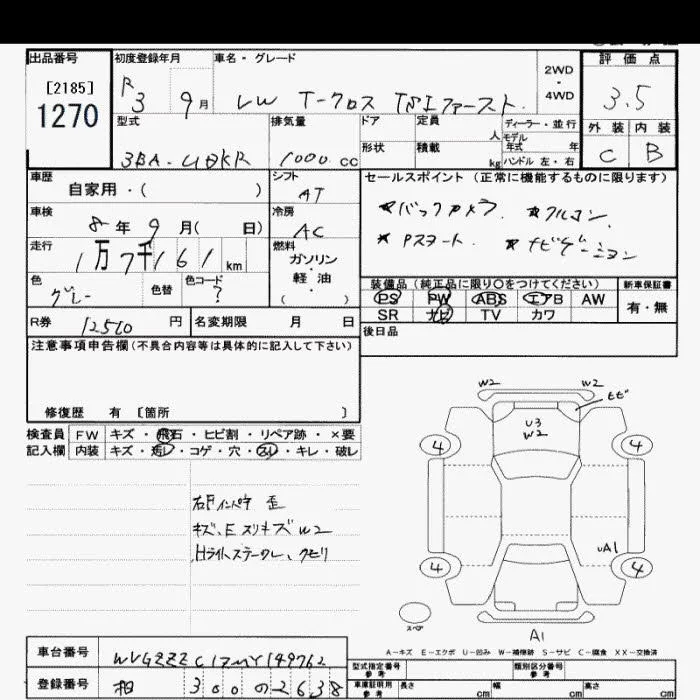 出品番号 初度登録年月 車名・グレード 2WD ・ 4WD 評価点
[2185]
1270
R3 9月 VW T-クロス TSIファースト 3.5
型式 排気量 ドア 定員 人 ディーラー・並行 外装 内装
モデル年式 年
3BA- 1000 cc 形状 積載 kg ハンドル 左・右 C B
車歴 シフト セールスポイント (正常に機能するものに限ります)
自家用・( ) AT
車検 冷房 *バックカメラ *アルコン
8年9月( 日) AC *Pスタート *ナビゲーション
走行 燃料
1万7千161km ガソリン・軽油・( )
色 色替 色コード 装備品 (純正品に限り○をつけてください) 新車保証書
グレー ? PS PW ABS エアB AW 有・無
SR ナビ TV カワ
R券 12510 円 名変期限 月 日 後日品
注意事項申告欄 (不具合内容等は具体的に記入して下さい)
修復歴 有 [箇所 ]
検査員 FW キズ・飛石・ヒビ割・リペア跡・×要
記入欄 内装 キズ・汚レ・コゲ・穴・スレ・キレ・破レ
キズ、E スリキズ W2
Hライト
W2 W2
ヒビ
U3
W2
4 4
UA1
4 4
スペア
A1
A-キズ E-エクボ U-凹み W-補修跡 S-サビ C-腐食 XX-交換済
車台番号 WVGZZZC1ZMY149762
型式指定番号 参考 類別区分番号 参考
登録番号 相 300 の 2638
車庫証明用 参考 長さ cm 幅 cm 高さ cm